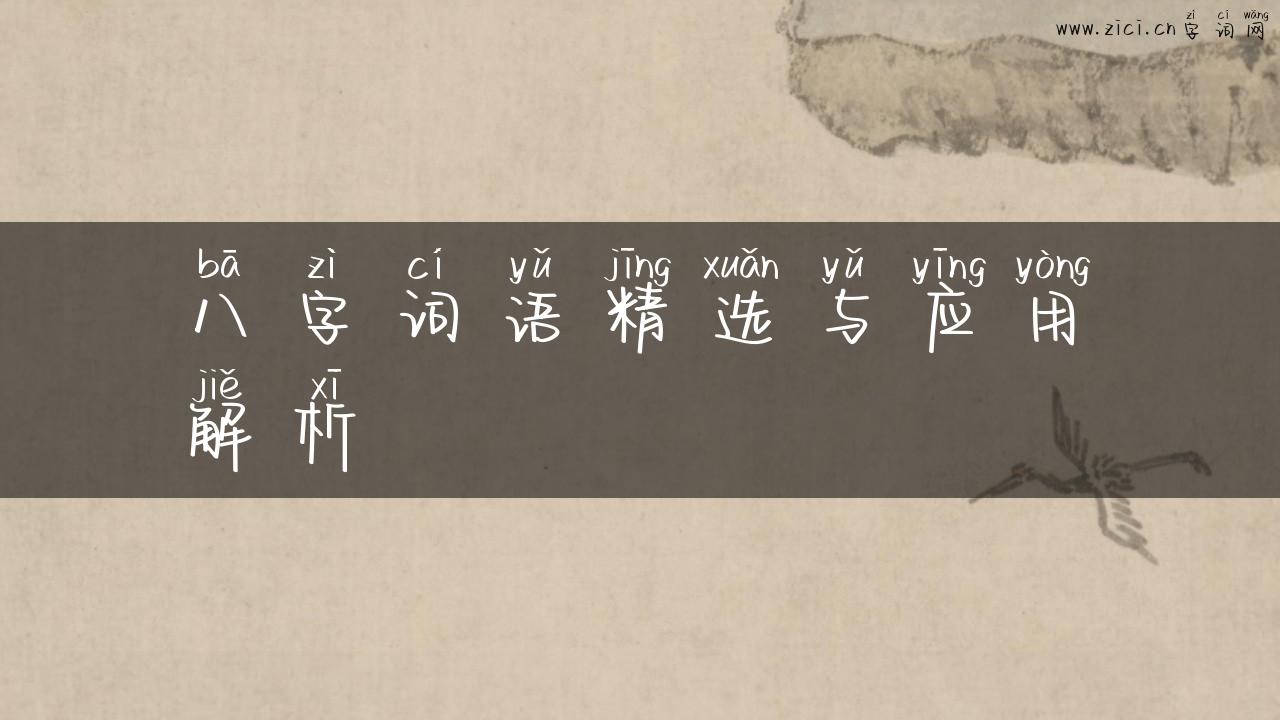 zì cí wǎng
www.zici.cn 字词网
bā zì cí yǔ jīng xuǎn yǔ yīng yòng
八字词语精选与应用
jiě xī
解析